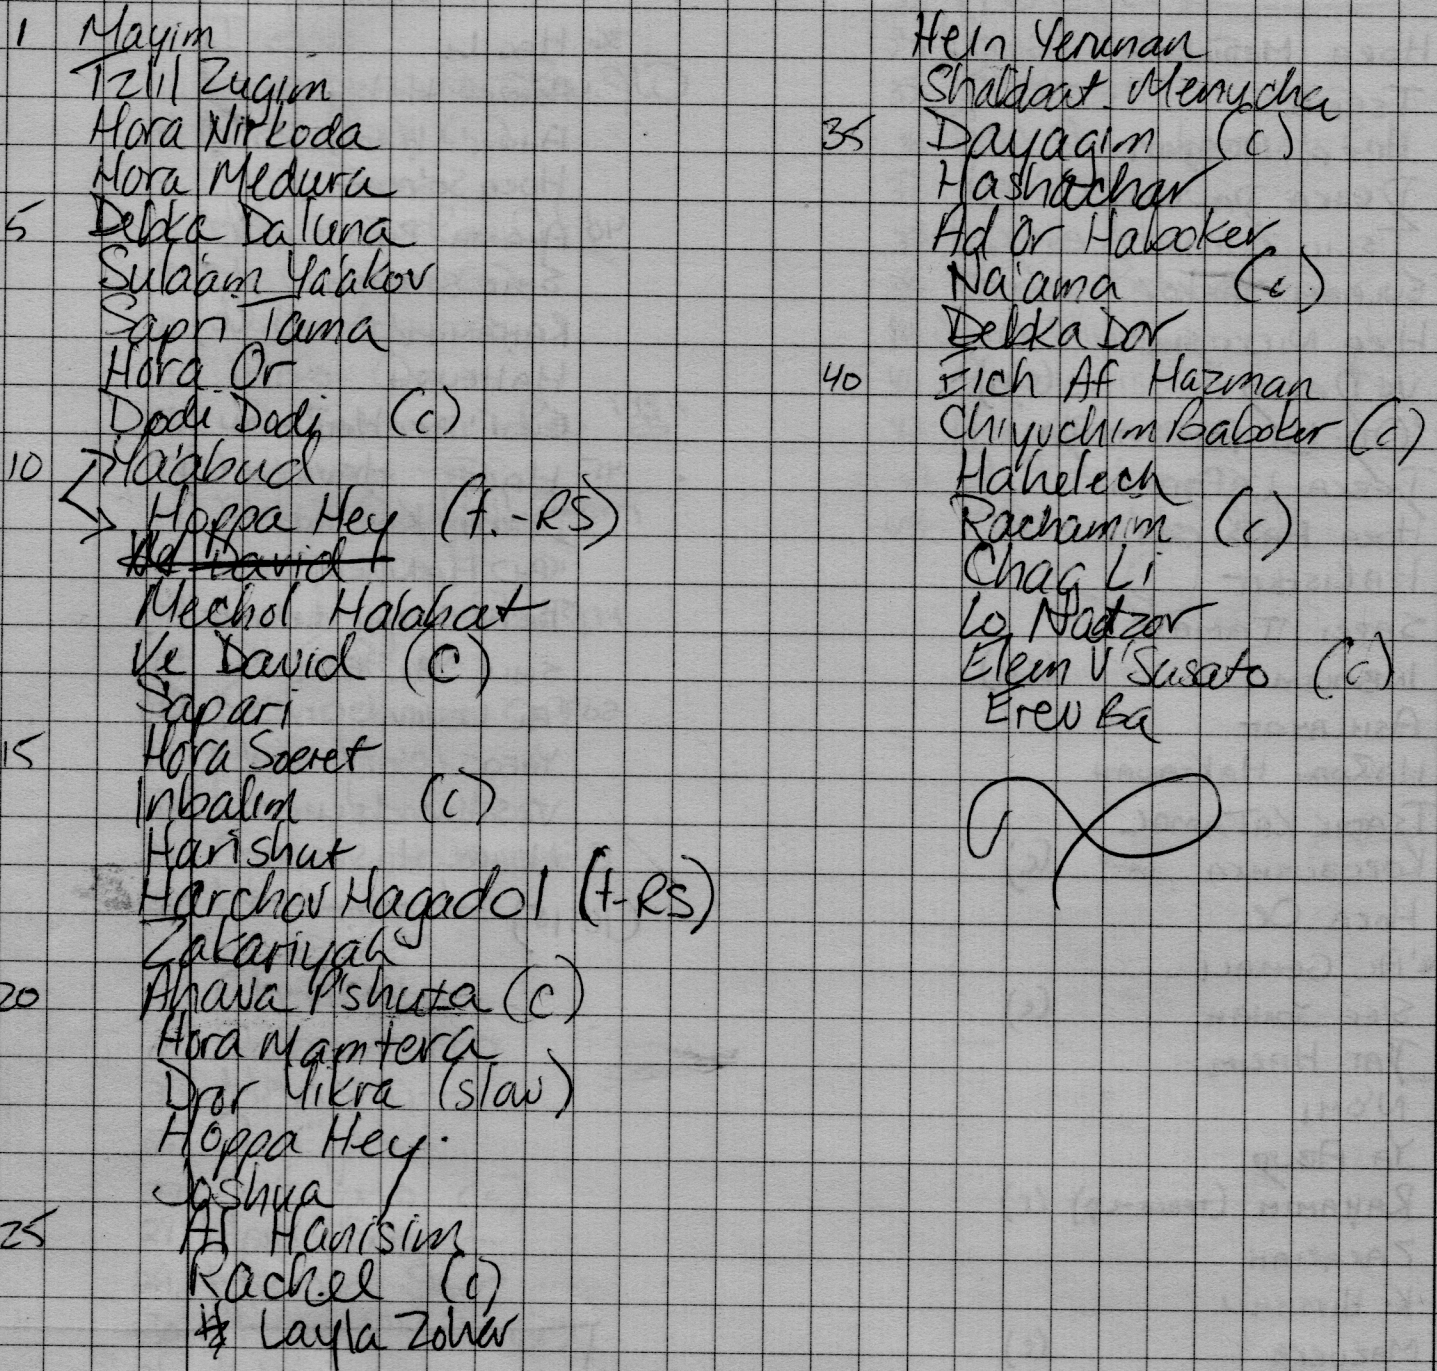 1 Mayim
Tzlil Zugim
Hora Nirkoda
Hora Medura
5 Debka Daluna
Sulaam Ya'akov
Sapri Tama
Hora Or
Dodi Dodi (c)
10 Ha'abud
Hoppa Hey (t.-RS)
David
Mechol Halahat
Ve David (C)
Sapari
15 Hora Soeret
Inbalim (c)
Harishut
Harchov Hagadol (t-RS)
Zakariyah
20 Ahava P'shuta (c)
Hora Mamtera
Dror Yikra (slow)
Hoppa Hey.
Joshua
25 Al Hanisim
Rachel (c)
Layla Zohar
Hein Yerunan
Shabbat Menucha
35 Dayagim (c)
Hashachar
Ad Or Haboker
Na'ama (c)
Debka Dor
40 Eich Af Hazman
Chiyuchim Baboker (c)
Hahelech
Rachamim (c)
Chag Li
Lo Nadtzor
Elem V'Susato (c)
Erev Ba